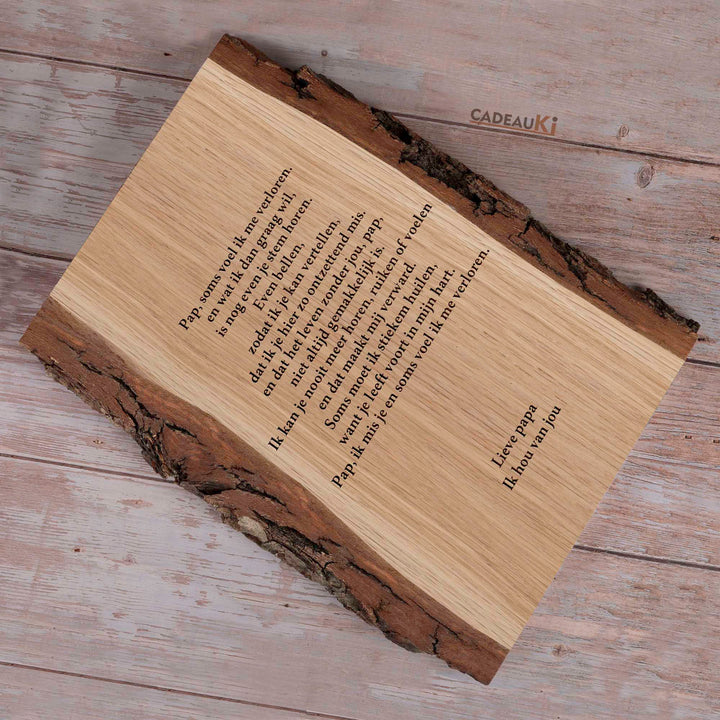 CADEAUKi
Pap, soms voel ik me verloren.
en wat ik dan graag wil,
is nog even je stem horen.
Even bellen,
zodat ik je kan vertellen,
dat ik je hier zo ontzettend mis.
en dat het leven zonder jou, pap,
niet altijd gemakkelijk is.
Ik kan je nooit meer horen, ruiken of voelen
en dat maakt mij verward.
Soms moet ik stiekem huilen,
want je leeft voort in mijn hart.
Pap, ik mis je en soms voel ik me verloren.
Lieve papa
Ik hou van jou